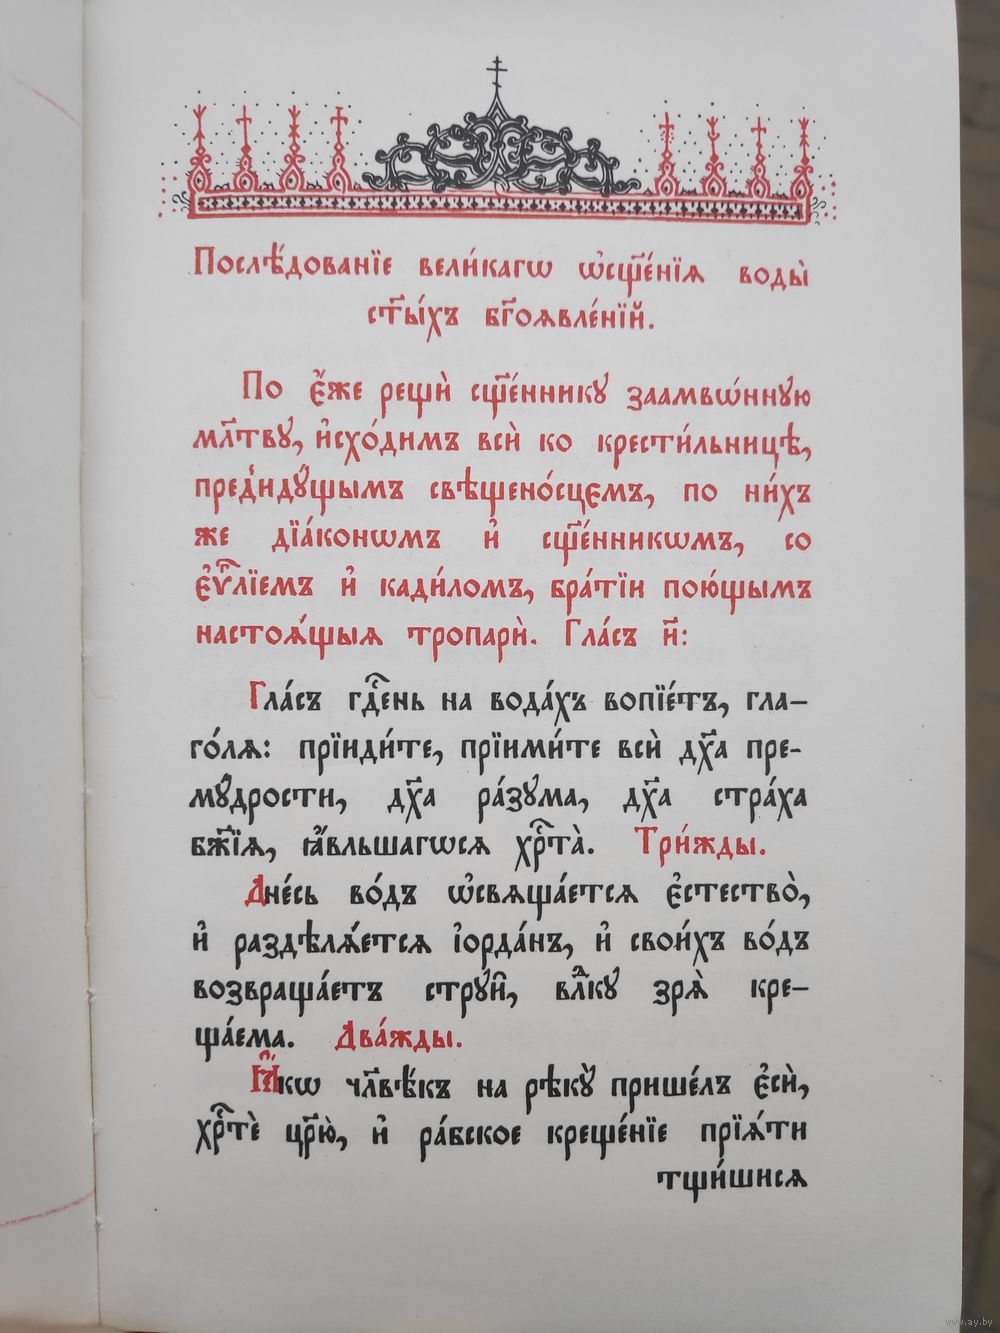 Послѣ́дованїе вели́кагѡ ѡ҆сщ҃е́нїѧ воды̀
ст҃ы́хъ бг҃оѧвле́нїй.
По є҆́же рещѝ сщ҃е́ннику заамвѡ́нную
мл҃тву, и҆схо́димъ всѝ ко крести́льницѣ,
пред̾иду́щымъ свѣщено́сцємъ, по ни́хъ
же дїа́конѡмъ и҆ сщ҃е́нникѡмъ, со
є҆ѵⷢ҇лїемъ и҆ кади́ломъ, бра́тїи пою́щымъ
настоѧ́щыѧ тропарѝ. Гла́съ и҃:
Гла́съ гдⷭ҇ень на вода́хъ вопїе́тъ, гла-
го́лѧ: прїиди́те, прїими́те всѝ дх҃а пре-
му́дрости, дх҃а ра́зума, дх҃а стра́ха
бж҃їѧ, ꙗ҆́вльшагѡсѧ хрⷭ҇та̀.  Три́жды.
Дне́сь во́дъ ѡ҆свѧща́етсѧ є҆стество̀,
и҆ раздѣлѧ́етсѧ і҆орда́нъ, и҆ свои́хъ во́дъ
возвраща́етъ струи̑, влⷣку зрѧ̀ кре-
ща́ема.  Два́жды.
Ꙗ҆́кѡ чл҃вѣ́къ на рѣкꙋ̀ прише́лъ є҆сѝ,
хрⷭ҇тѐ цр҃ю̀, и҆ ра́бское креще́нїе прїѧ́ти
тщи́шисѧ
www.ay.by